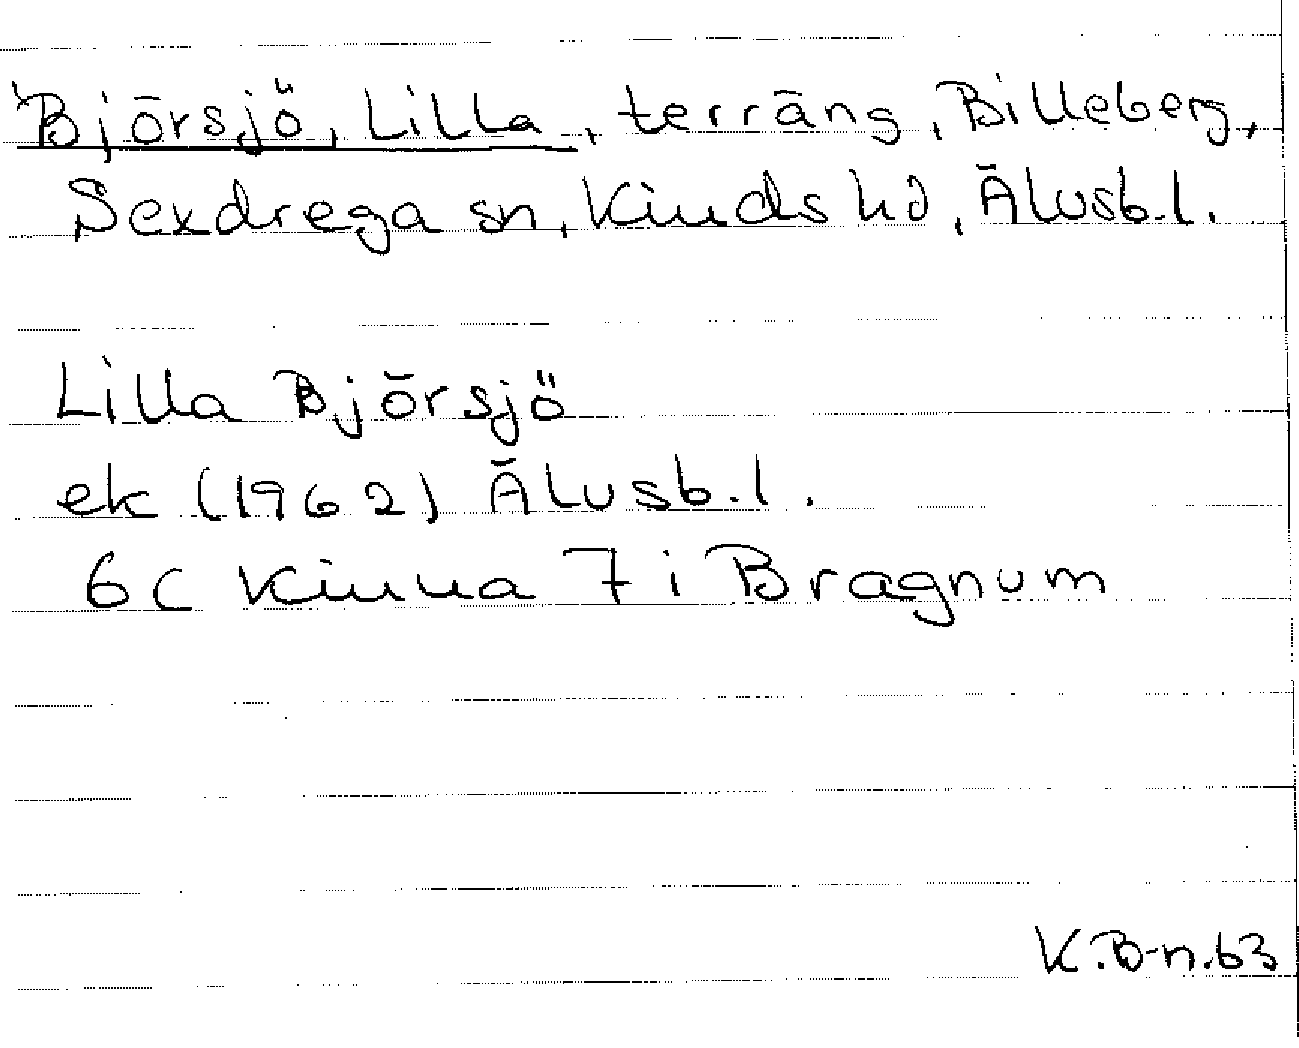 Björsjö, Lilla, terräng, Billeberg,
Sexdrega sn, Kinds hd, Älvsb.l.
Lilla Björsjö
ek (1962) Älvsb.l.
6C Kinna 7i Bragnum
K.B-n.63